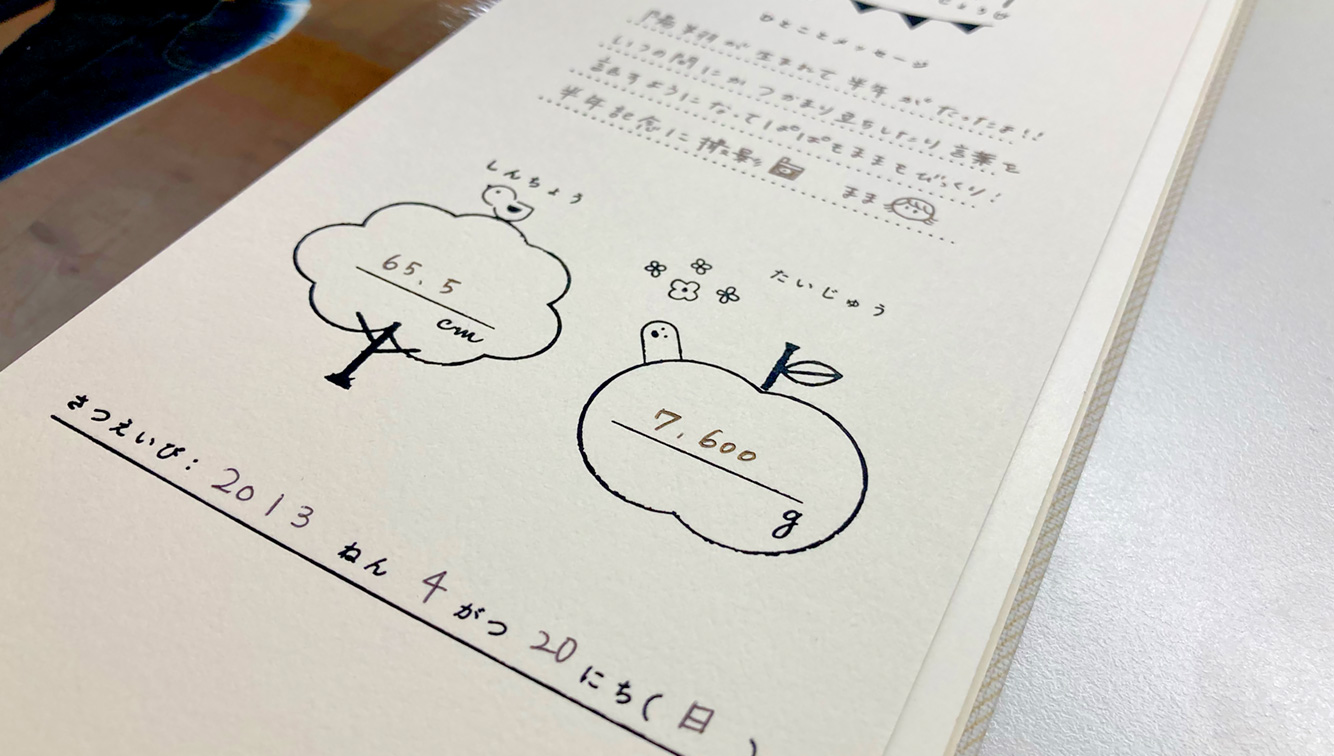 ひとことメッセージ
が生まれて 半年 がたったよ!!
いつの間にか つかまり立ちしたり 言葉を
話すようになって ぱぱもままもびっくり!
半年記念に撮影 まま
しんちょう
65.5
cm
たいじゅう
7,600
g
さつえいび: 2013 ねん 4 がつ 20 にち(日)